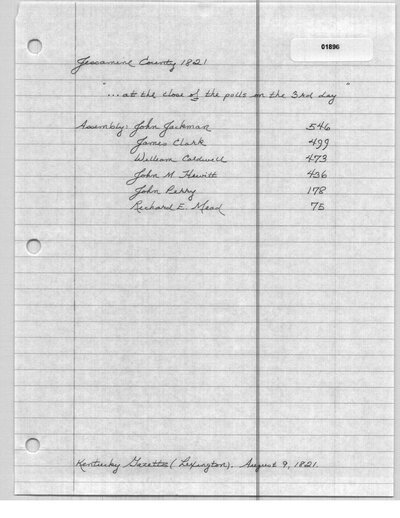 01896
Jessamine County 1821
"...at the close of the polls on the 3rd day"
Assembly: John Jackman 546
James Clark 499
William Caldwell 473
John M. Hewitt 436
John Perry 178
Richard E. Mead 75
Kentucky Gazette (Lexington). August 9, 1821.